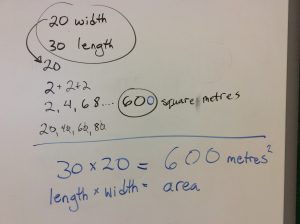 20 width
30 length
20
2+2+2
2, 4, 6 8.... 600 square metres
20, 40, 60, 80
30 × 20 = 600 metres²
length × width = area